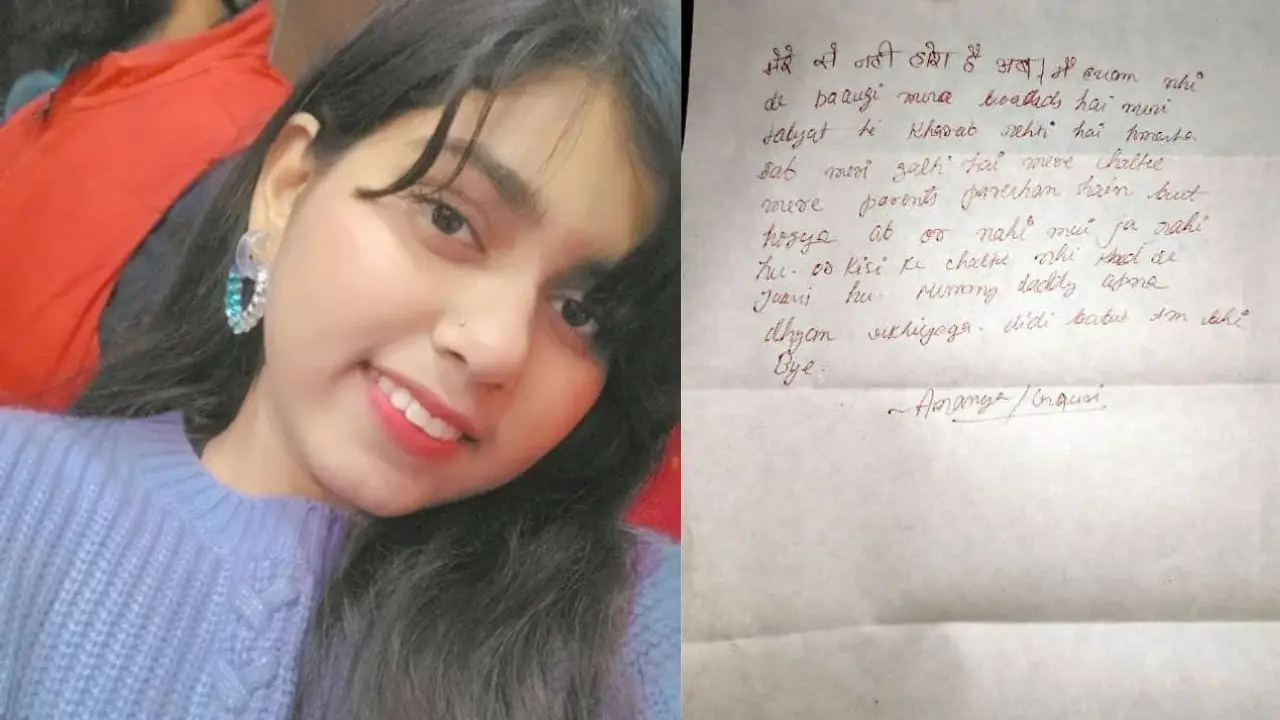 मेरे से नही होरा है अब। मैं exam nhi
de paaugi mera boards hai meri
tabyat hi kharab rehti hai hmesha
sab meri galti hai mere chalte
mere parents pareshan hain but
hogya ab or nahi mei ja rahi
hu. or kisi ke chalte nhi khud se
jaari hu. mummy daddy apna
dhyan rkhiyega. didi babu
Bye.
~ Ananya / Gauri